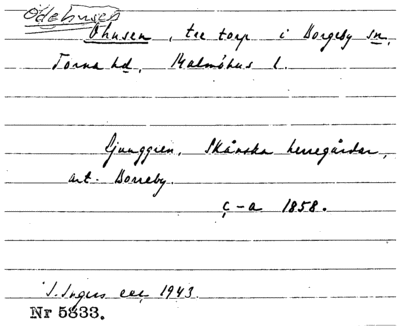 Ödehusen
Ohusen, tre torp i Borgeby sn,
Torna hd, Malmöhus l.
Ljunggren, Skånska herregårdar,
art. Borreby.
ç-a 1858.
S. Ingers exc. 1943.
Nr 5333.